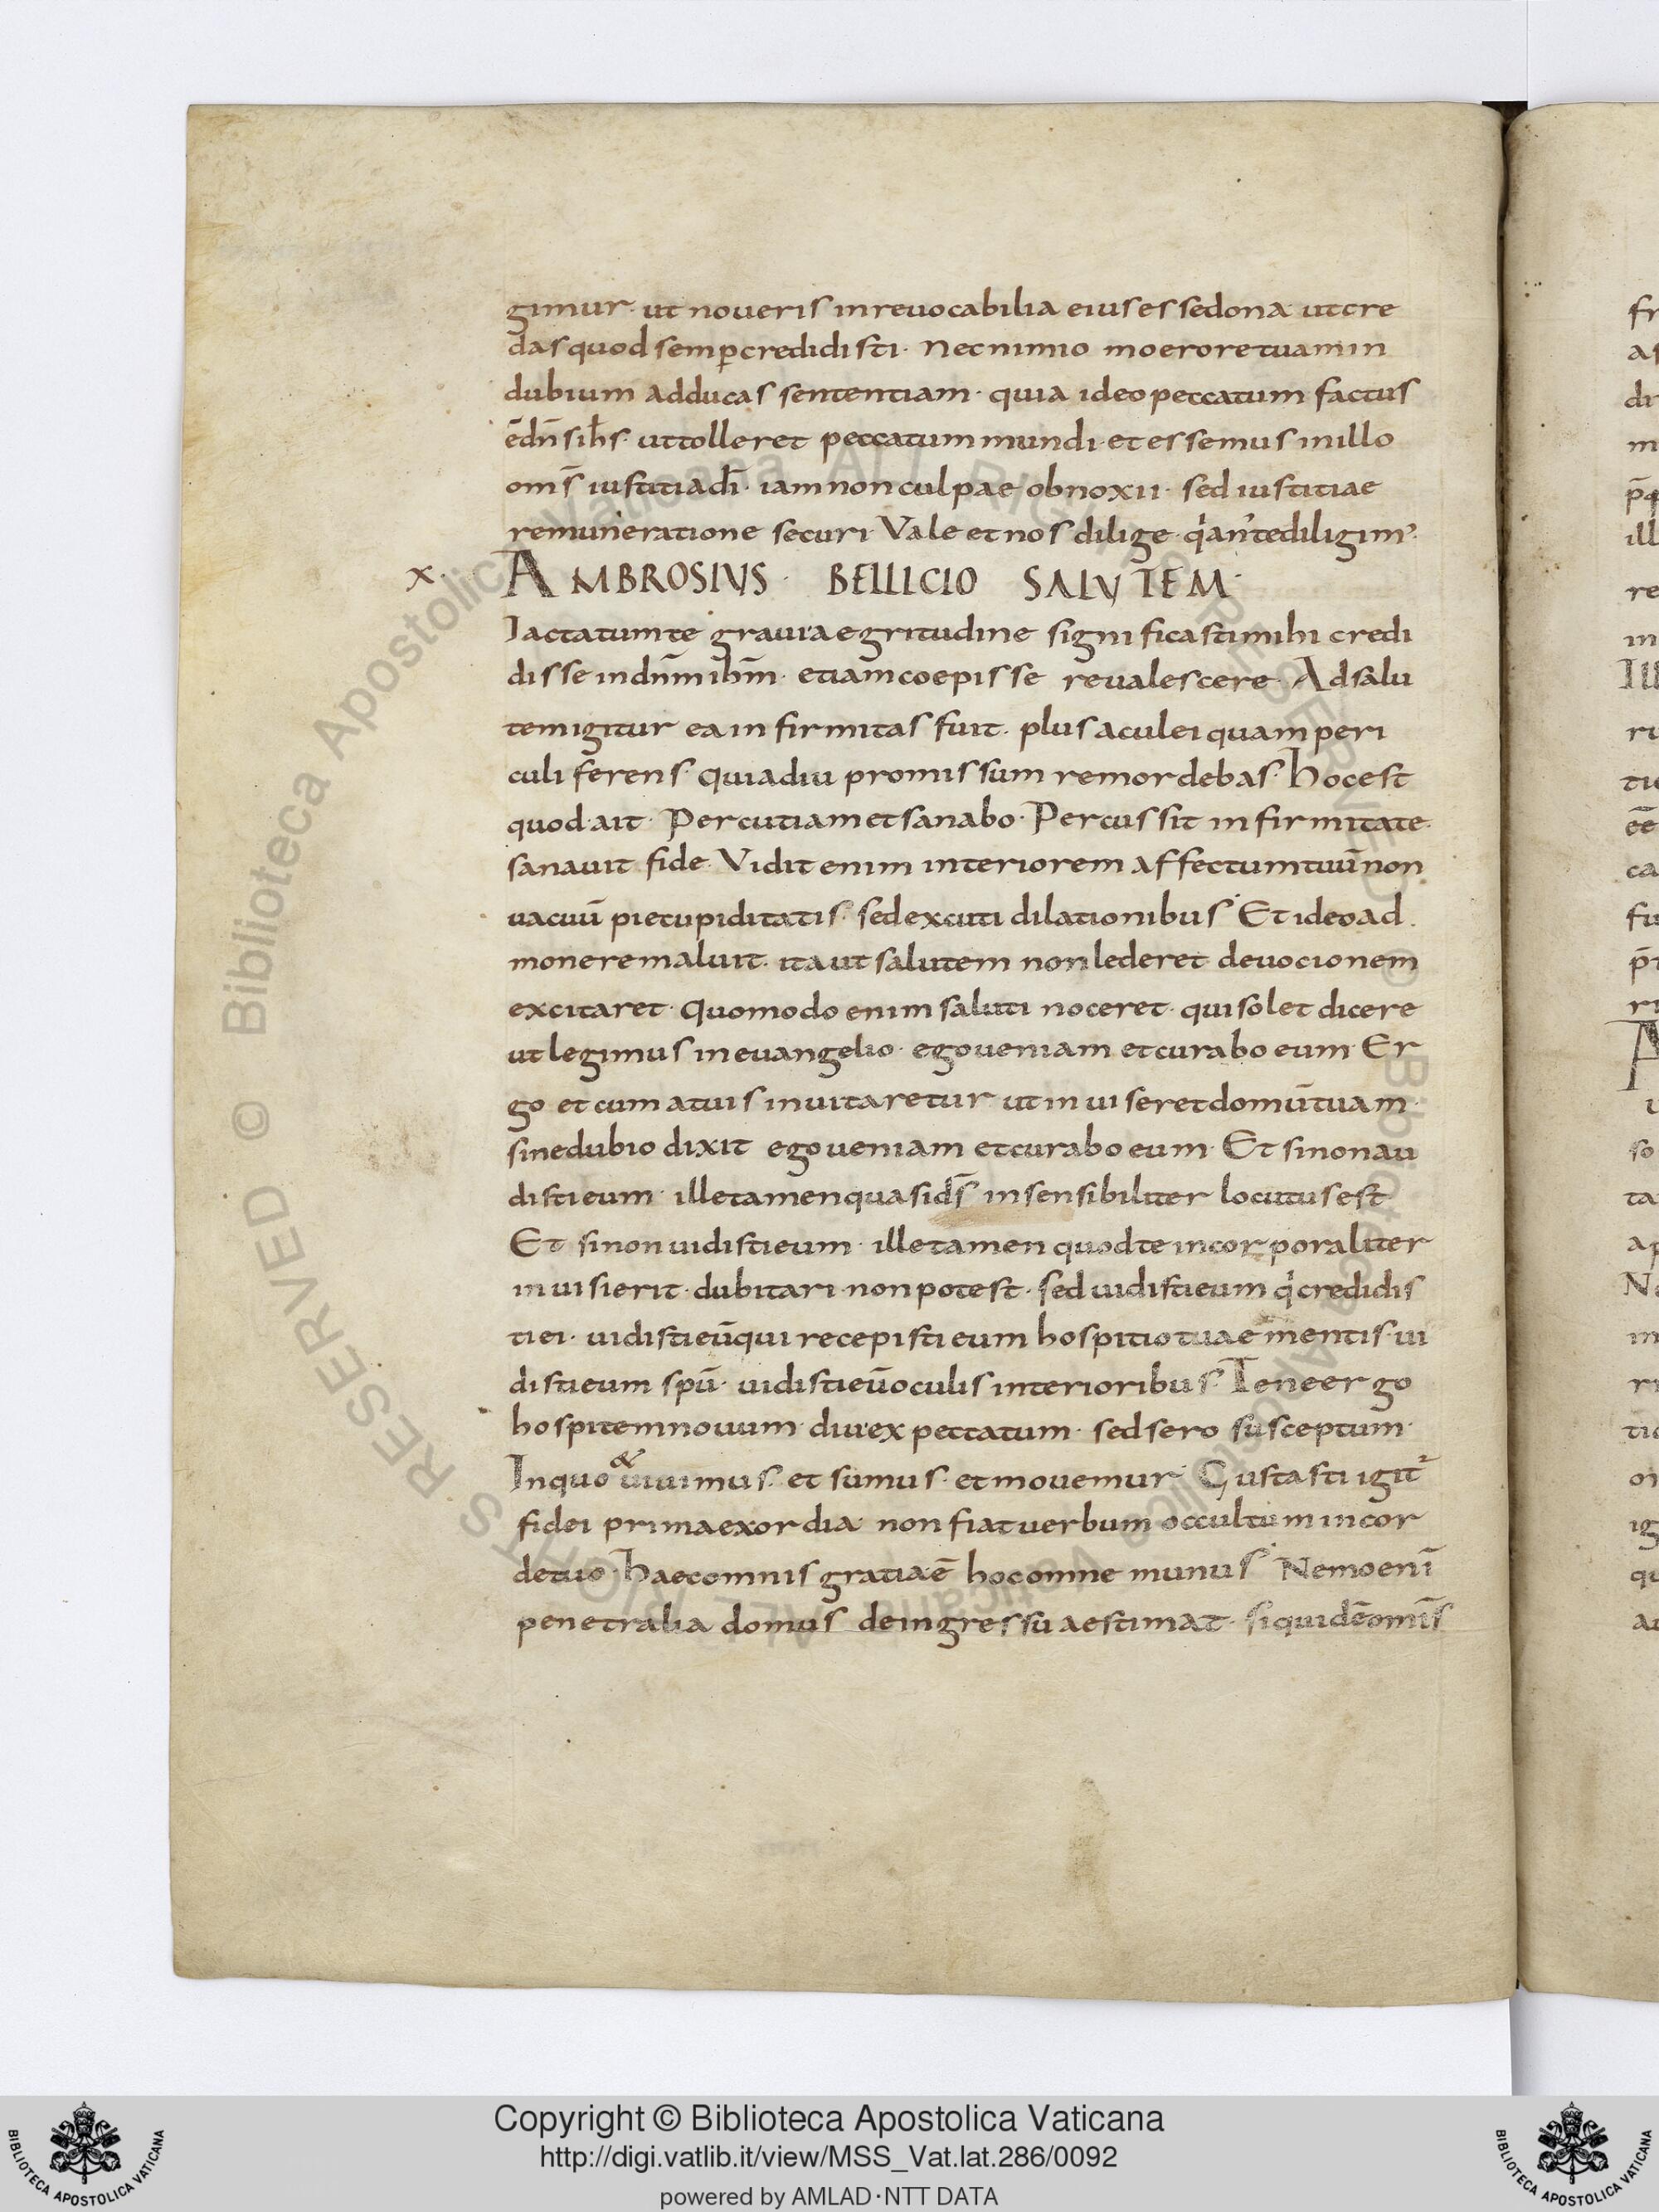 gimur· ut noueris inreuocabilia eius essedona· utcre
das quod semꝑcredidisti· nec nimio moerore tuam in
dubium adducas sententiam· quia ideo peccatum factus
ē dn̄s ih̄s· ut tolleret peccatum mundi· et essemus in illo
om̄s iustitia dī· iam non culpae obnoxii· sed iustitiae
remuneratione securi· Vale et nos dilige· qͥa n̄ te diligim᾿·
x· AMBROSIVS· BELLICIO SALVTEM·
Iactatum te graui aegritudine significasti mihi credi
disse in dn̄m ihm̄· etiam coepisse reualescere· Ad salu
tem igitur ea infirmitas fuit· plus aculei quam peri
culi ferens· quia diu promissum remordebas· hoc est
quod ait· Percutiam et sanabo· Percussit infirmitate·
sanauit fide· Vidit enim interiorem affectum tuū non
uacuū pie cupiditatis· sed excuti dilationibus· Et ideo ad
monere maluit· ita ut salutem non lederet deuocionem
excitaret· quomodo enim saluti noceret· qui solet dicere
ut legimus in euangelio· ego ueniam et curabo eum· Er
go et cum a tuis inuitaretur ut inuiseret domū tuam·
sine dubio dixit ego ueniam et curabo eum· Et si non au
disti eum· ille tamen quasi dī s̄ insensibiliter locutus est
Et si non uidisti eum· ille tamen quod te incorporaliter
inuisierit· dubitari non potest· sed uidisti eum qͥ credidis
ti ei· uidisti eū qui recepisti eum hospitio tuae mentis· ui
disti eum spū· uidisti eū oculis interioribus· Tene ergo
hospitem nouum· diu expectatum· sed sero susceptum·
In quo & uiuimus· et sumus· et mouemur· Gustasti igit᾿
fidei prima exordia· non fiat uerbum occultum in cor
de tuo· haec omnis gratia ē hoc omne munus· Nemo eni̅
penetralia domus de ingressu aestimat· siquidē omīs
© Biblioteca Apostolica Vaticana ALL RIGHTS RESERVED
Copyright © Biblioteca Apostolica Vaticana
http://digi.vatlib.it/view/MSS_Vat.lat.286/0092
powered by AMLAD·NTT DATA
BIBLIOTECA APOSTOLICA VATICANA
BIBLIOTECA APOSTOLICA VATICANA